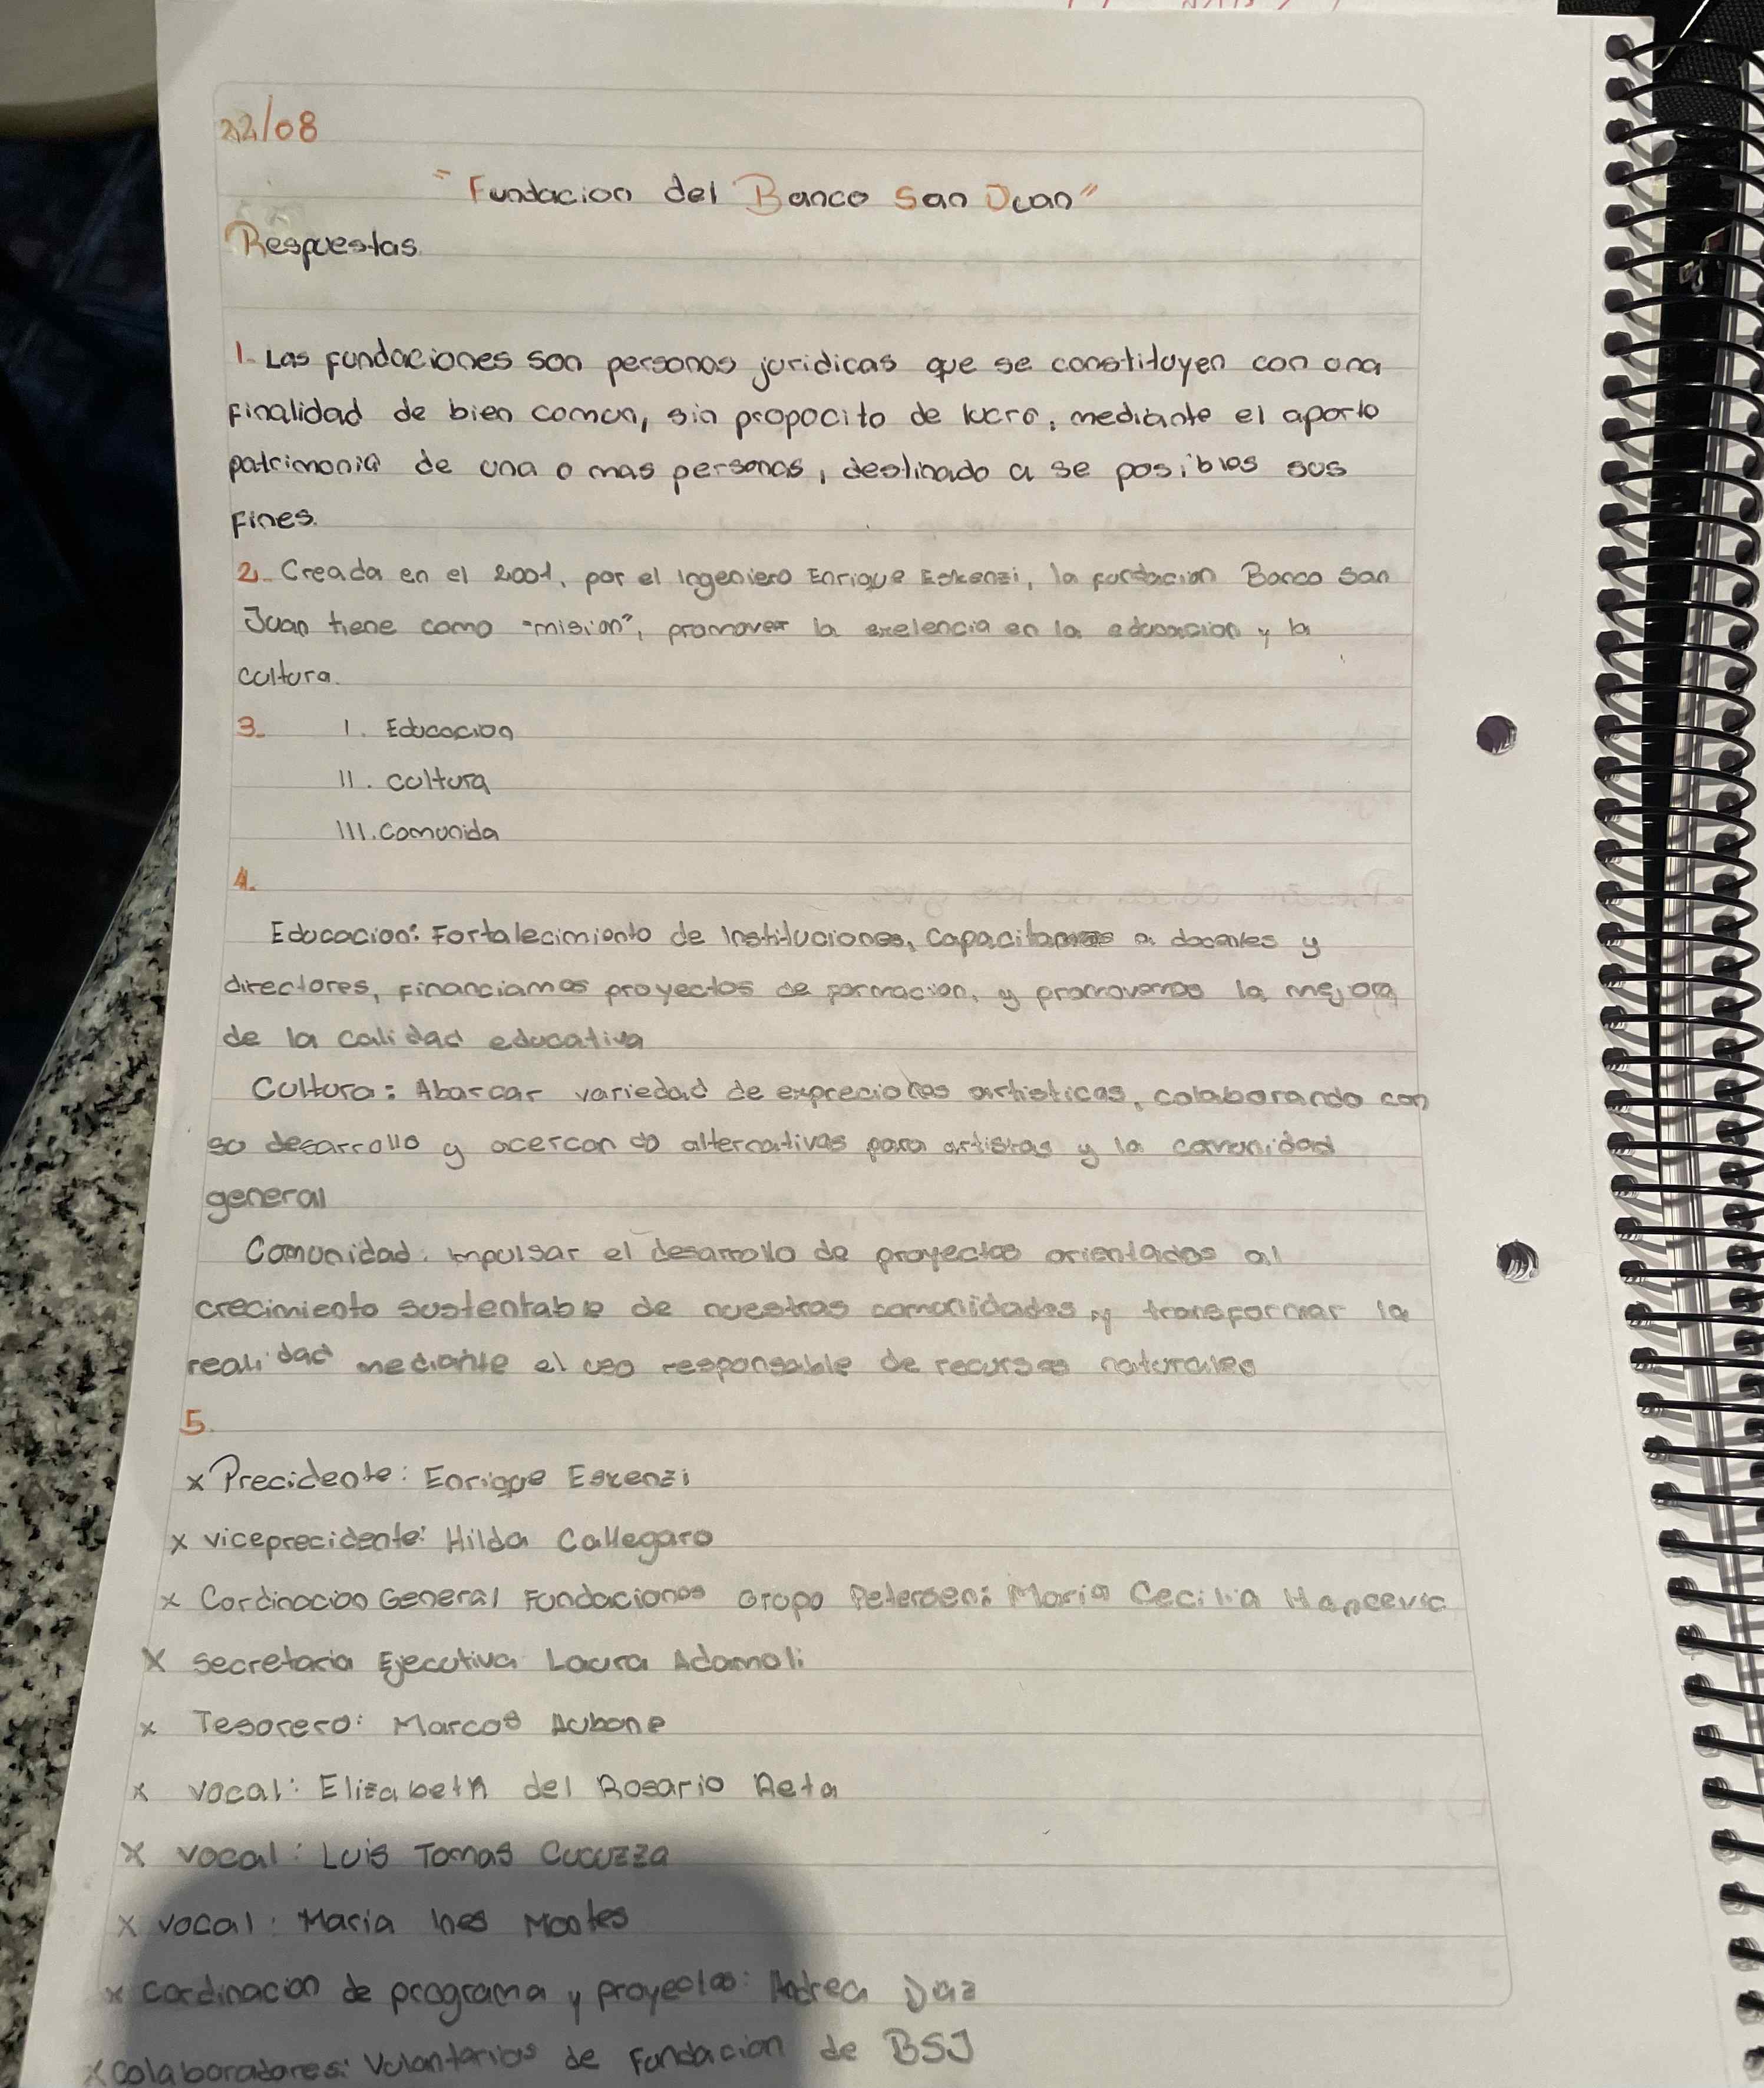 22/08
"Fundacion del Banco San Juan"
Respuestas.
1- Las fundaciones son personas juridicas que se constituyen con una
finalidad de bien comun, sin propocito de lucro, mediante el aporto
patrimonia de una o mas personas, destinado a se posibles sus
fines.
2- Creada en el 2001, por el Ingeniero Enrique Eskenzi, la fundacion Banco San
Juan tiene como "mision", promover la exelencia en la educacion y la
cultura.
3- I. Educacion
II. Cultura
III. Comunida
4.
Educacion: Fortalecimiento de Instituciones, Capacitamos a docentes y
directores, financiamos proyectos de formacion, y promovemos la mejora
de la calidad educativa
Cultura: Abarcar variedad de expreciones artisticas, colaborando con
so desarrollo y acercando alternativas para artistas y la comunidad
general
Comunidad: impulsar el desarrollo de proyectos orientados al
crecimiento sustentable de nuestras comunidades y transformar la
realidad mediante el uso responsable de recursos naturales
5.
x Precidente: Enrique Eskenzi
x viceprecidente: Hilda Callegaro
x Cordinacion General Fundaciones Grupo Petersen: Maria Cecilia Hancevic
x secretaria Ejecutiva Laura Adamoli
x Tesorero: Marcos Aubone
x vocal: Elizabeth del Rosario Reta
x vocal: Luis Tomas Cucuzza
x vocal: Maria Ines Montes
x cordinacion de programa y proyectos: Andrea Diaz
x colaboradores: Voluntarios de Fundacion de BSJ